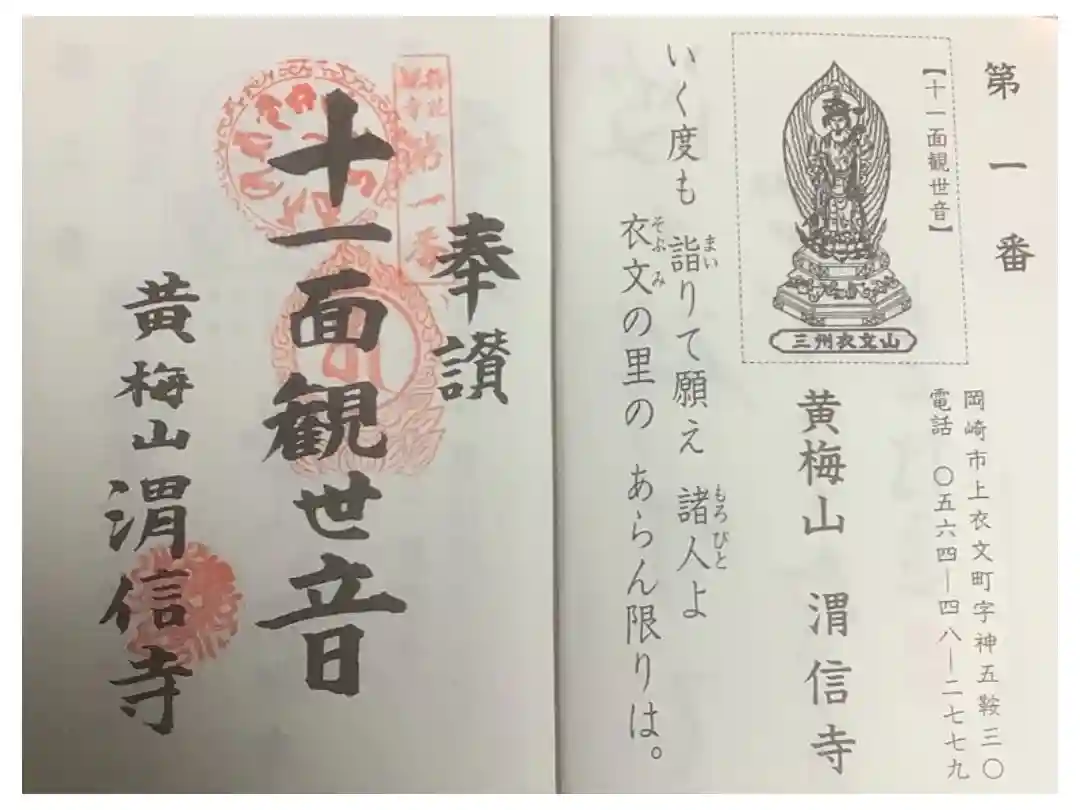 第一番
【十一面観世音】
三州衣文山
岡崎市上衣文町字神五鞍三〇
電話 〇五六四―四八―二七七九
黄梅山 渭信寺
いく度も 詣りて願え 諸人よ
まい
もろびと
衣文の里の あらん限りは。
そぶみ
奉讃
十一面観世音
黄梅山渭信寺